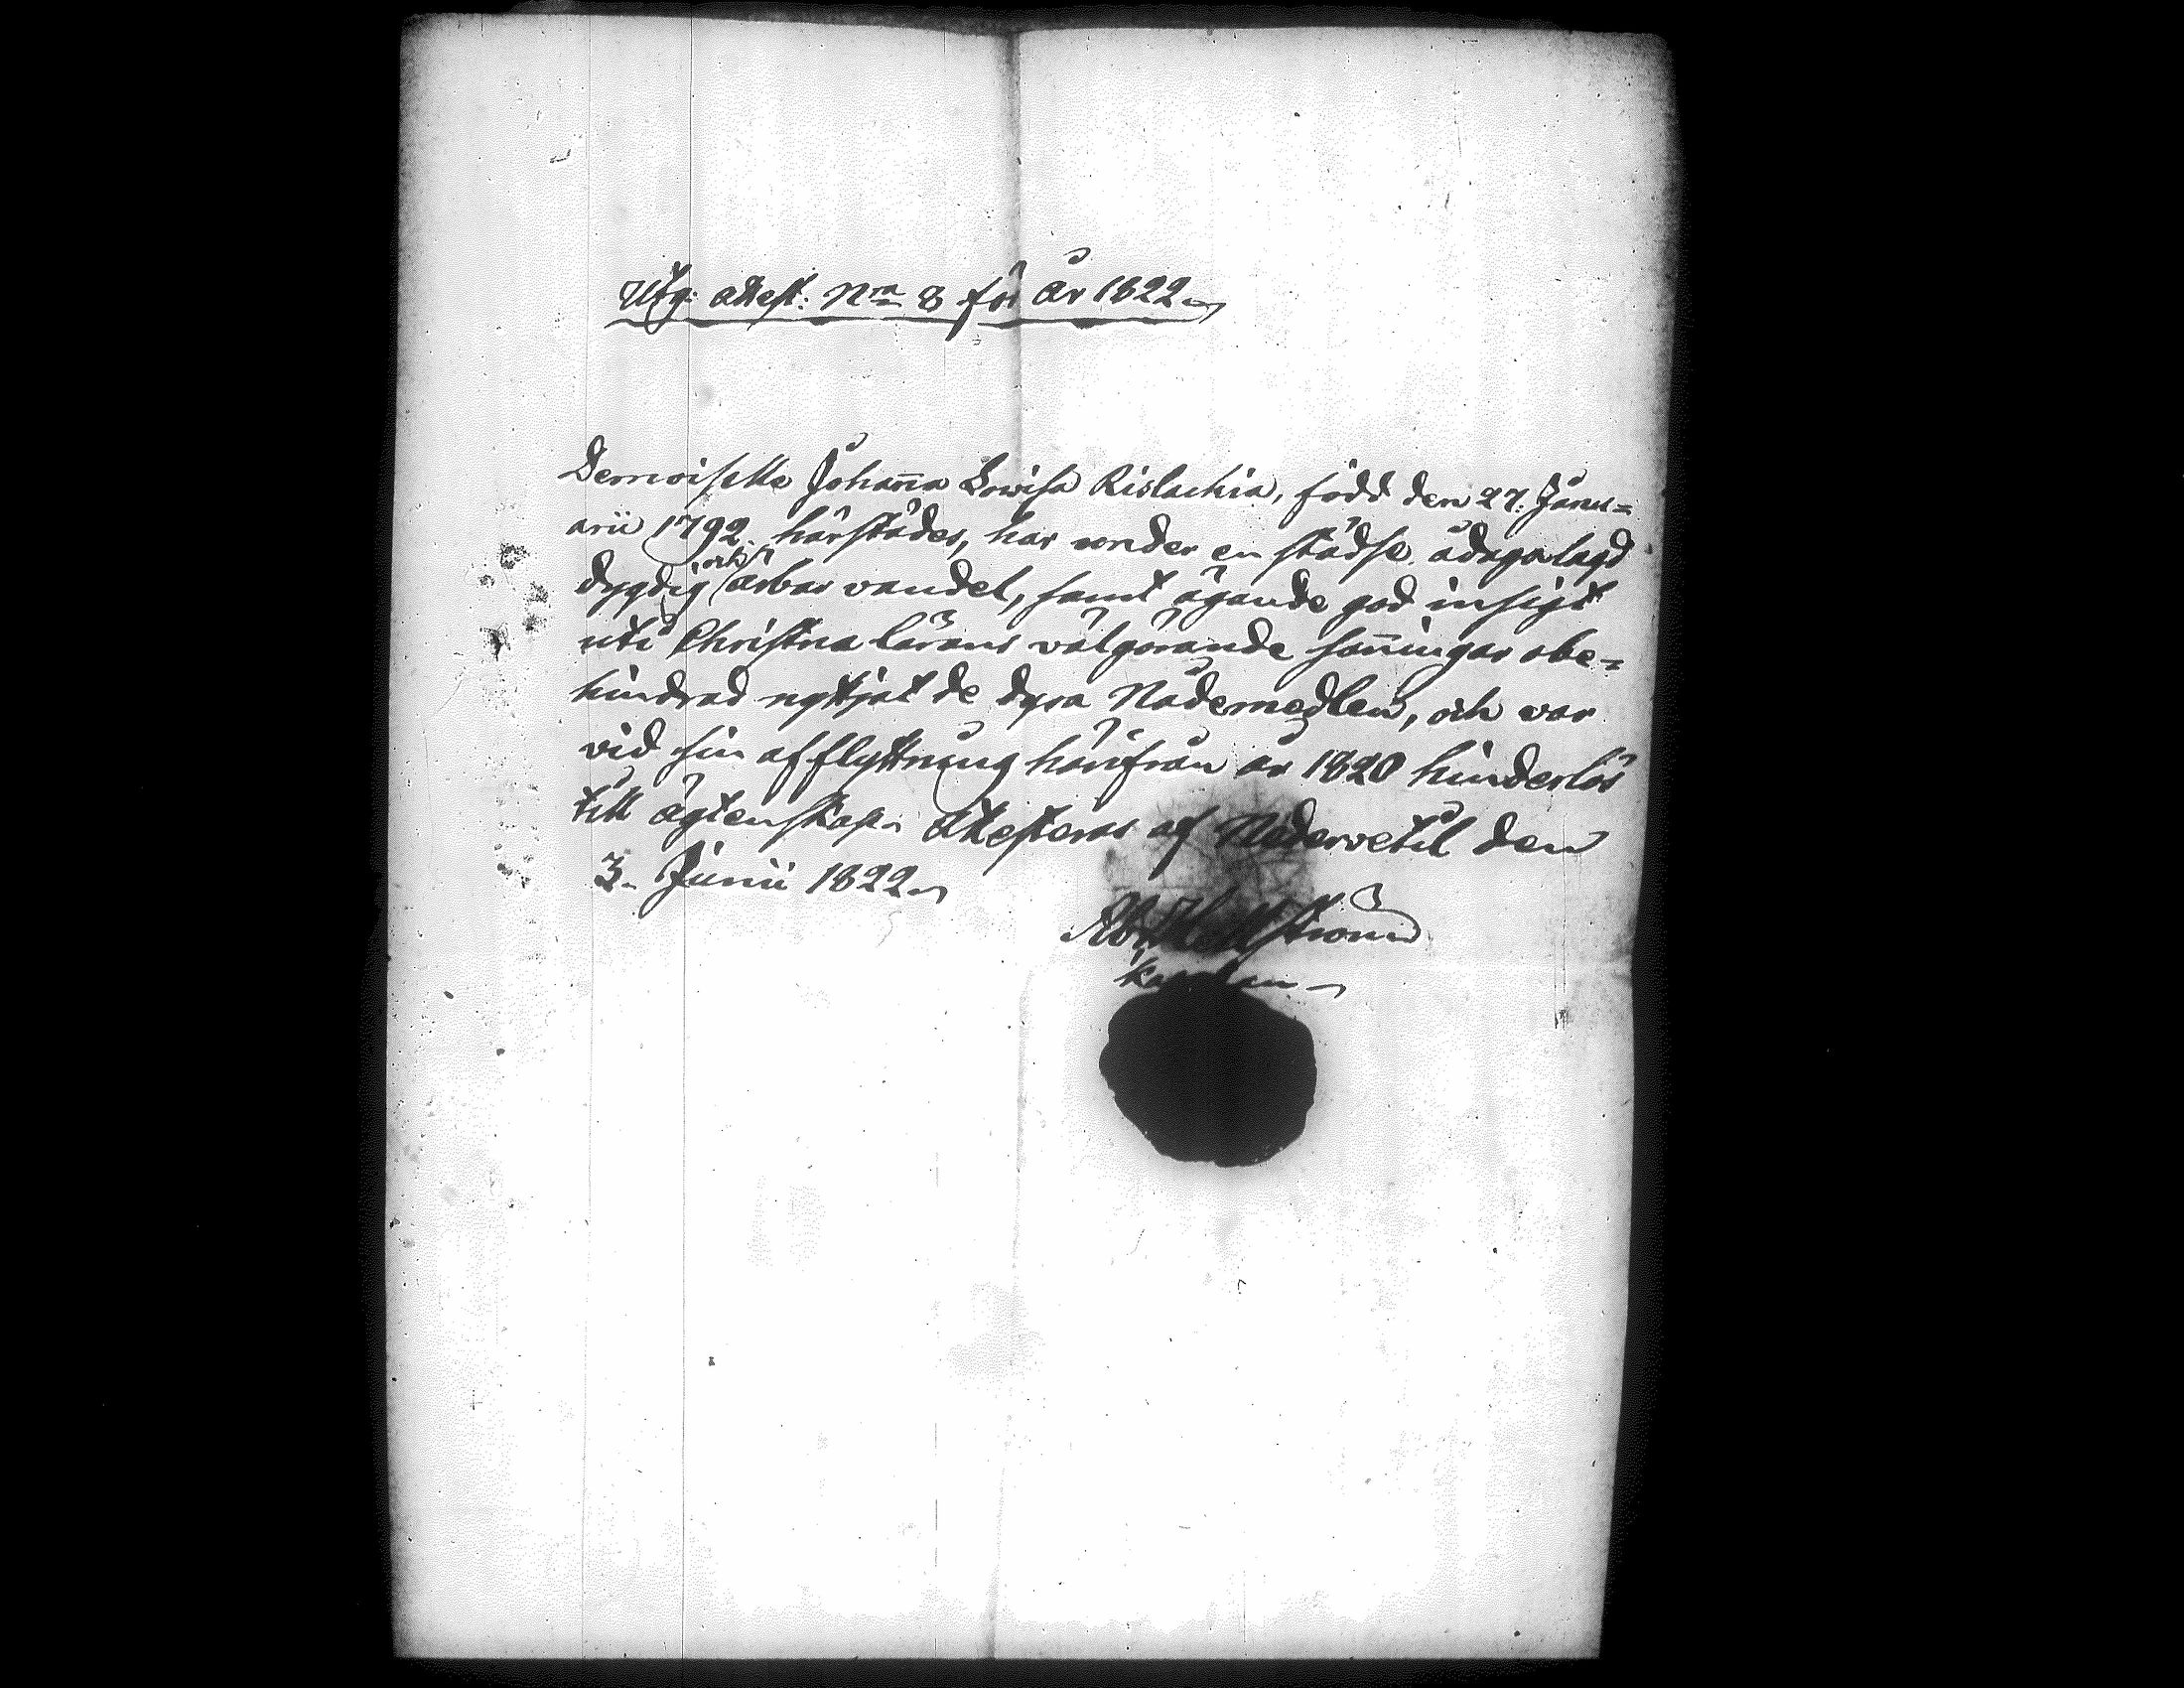 Utg: attest: Nro 8 för år 1822
Demoiselle Johanna Lovisa Rislachia, född den 27. Janu=
arii 1792. härstädes, har under en städse ådagalagd
dygdig och ärbar vandel, samt ägande god insigt
uti Christna lärans välgörande sanningar obe=
hindrad nyttjat de dyra Nådemedlen, och var
vid sin afflyttning härifrån år 1820 hinderlös
till ägtenskap. Attesteras af Nedervetil den
3. Junii 1822
kapellan